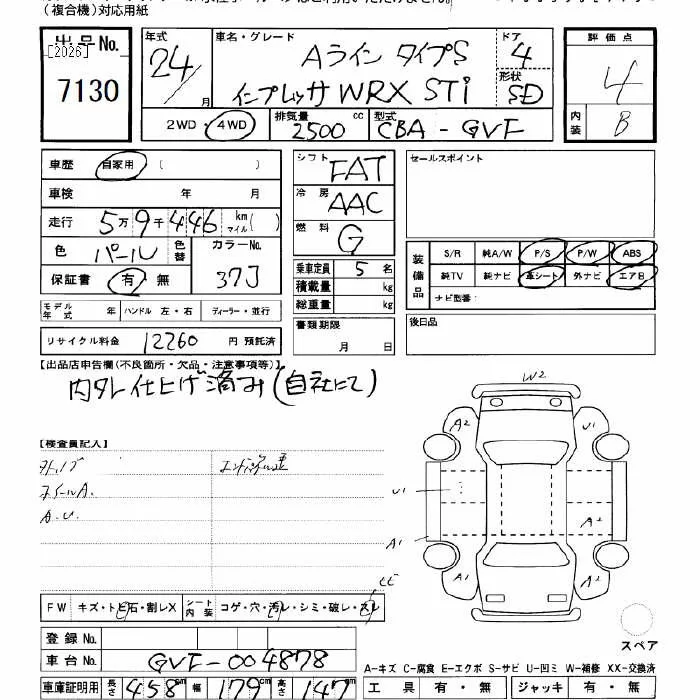 （複合機）対応用紙
出品No.
[2026]
7130
年式
24
月
車名・グレード
Aライン タイプS
インプレッサ WRX STi
ドア
4
形状
SD
評価点
4
内装
B
2WD・4WD
排気量
2500
cc
型式
CBA-GVF
車歴
自家用
(　　)
車検
年　月
走行
5万9千446
km
マイル
(　)
色
パール
色替
カラーNo.
37J
保証書
有・無
モデル年式
年
ハンドル 左・右
ディーラー・並行
リサイクル料金
12260
円 預託済
シフト
FAT
冷房
AAC
燃料
G
乗車定員 5 名
積載量 kg
総重量 kg
書類期限
月　日
セールスポイント
装備品
S/R 純A/W P/S P/W ABS
純TV 純ナビ 革シート 外ナビ エアB
ナビ型番：
後日品
【出品店申告欄(不良箇所・欠品・注意事項等)】
内外仕上げ済み(自社にて)
【検査員記入】
A.U.
W2
A2
U1
U1
A2
A1
A1
A2
FW
キズ・トビ石・割レX
シート内装
コゲ・穴・汚レ・シミ・破レ・スレ
登録No.
車台No.
GVF-004878
車庫証明用
長さ 458 cm
幅 179 cm
高さ 147 cm
スペア
A-キズ C-腐食 E-エクボ S-サビ U-凹ミ W-補修 XX-交換済
工具 有・無
ジャッキ 有・無